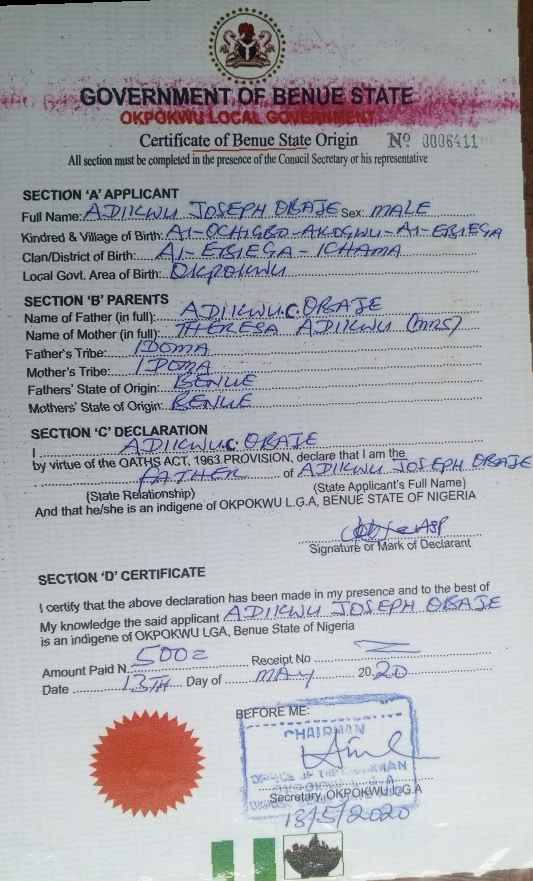 GOVERNMENT OF BENUE STATE
OKPOKWU LOCAL GOVERNMENT
Certificate of Benue State Origin Nº 0006411
All section must be completed in the presence of the Conucil Secretary or his representative
SECTION 'A' APPLICANT
Full Name: ADIIKWU JOSEPH OBAJE Sex: MALE
Kindred & Village of Birth: AI-OCHIGBO-AKOGWU-AI-EBIEGA
Clan/District of Birth: AI-EBIEGA-ICHAMA
Local Govt. Area of Birth: OKPOKWU
SECTION 'B' PARENTS
Name of Father (in full): ADIIKWU.C.OBAJE
Name of Mother (in full): THERESA ADIIKWU (MRS)
Father's Tribe: IDOMA
Mother's Tribe: IDOMA
Fathers' State of Origin: BENUE
Mothers' State of Origin: BENUE
SECTION 'C' DECLARATION
I ADIIKWU.C.OBAJE
by virtue of the OATHS ACT, 1963 PROVISION, declare that I am the
FATHER of ADIIKWU JOSEPH OBAJE
(State Relationship) (State Applicant's Full Name)
And that he/she is an indigene of OKPOKWU L.G.A, BENUE STATE OF NIGERIA
Signature or Mark of Declarant
SECTION 'D' CERTIFICATE
I certify that the above declaration has been made in my presence and to the best of
My knowledge the said applicant ADIIKWU JOSEPH OBAJE
is an indigene of OKPOKWU LGA, Benue State of Nigeria
Amount Paid N 500= Receipt No
Date 13TH Day of MAY 2020
BEFORE ME:
CHAIRMAN
Secretary, OKPOKWU L.G.A
13/5/2020